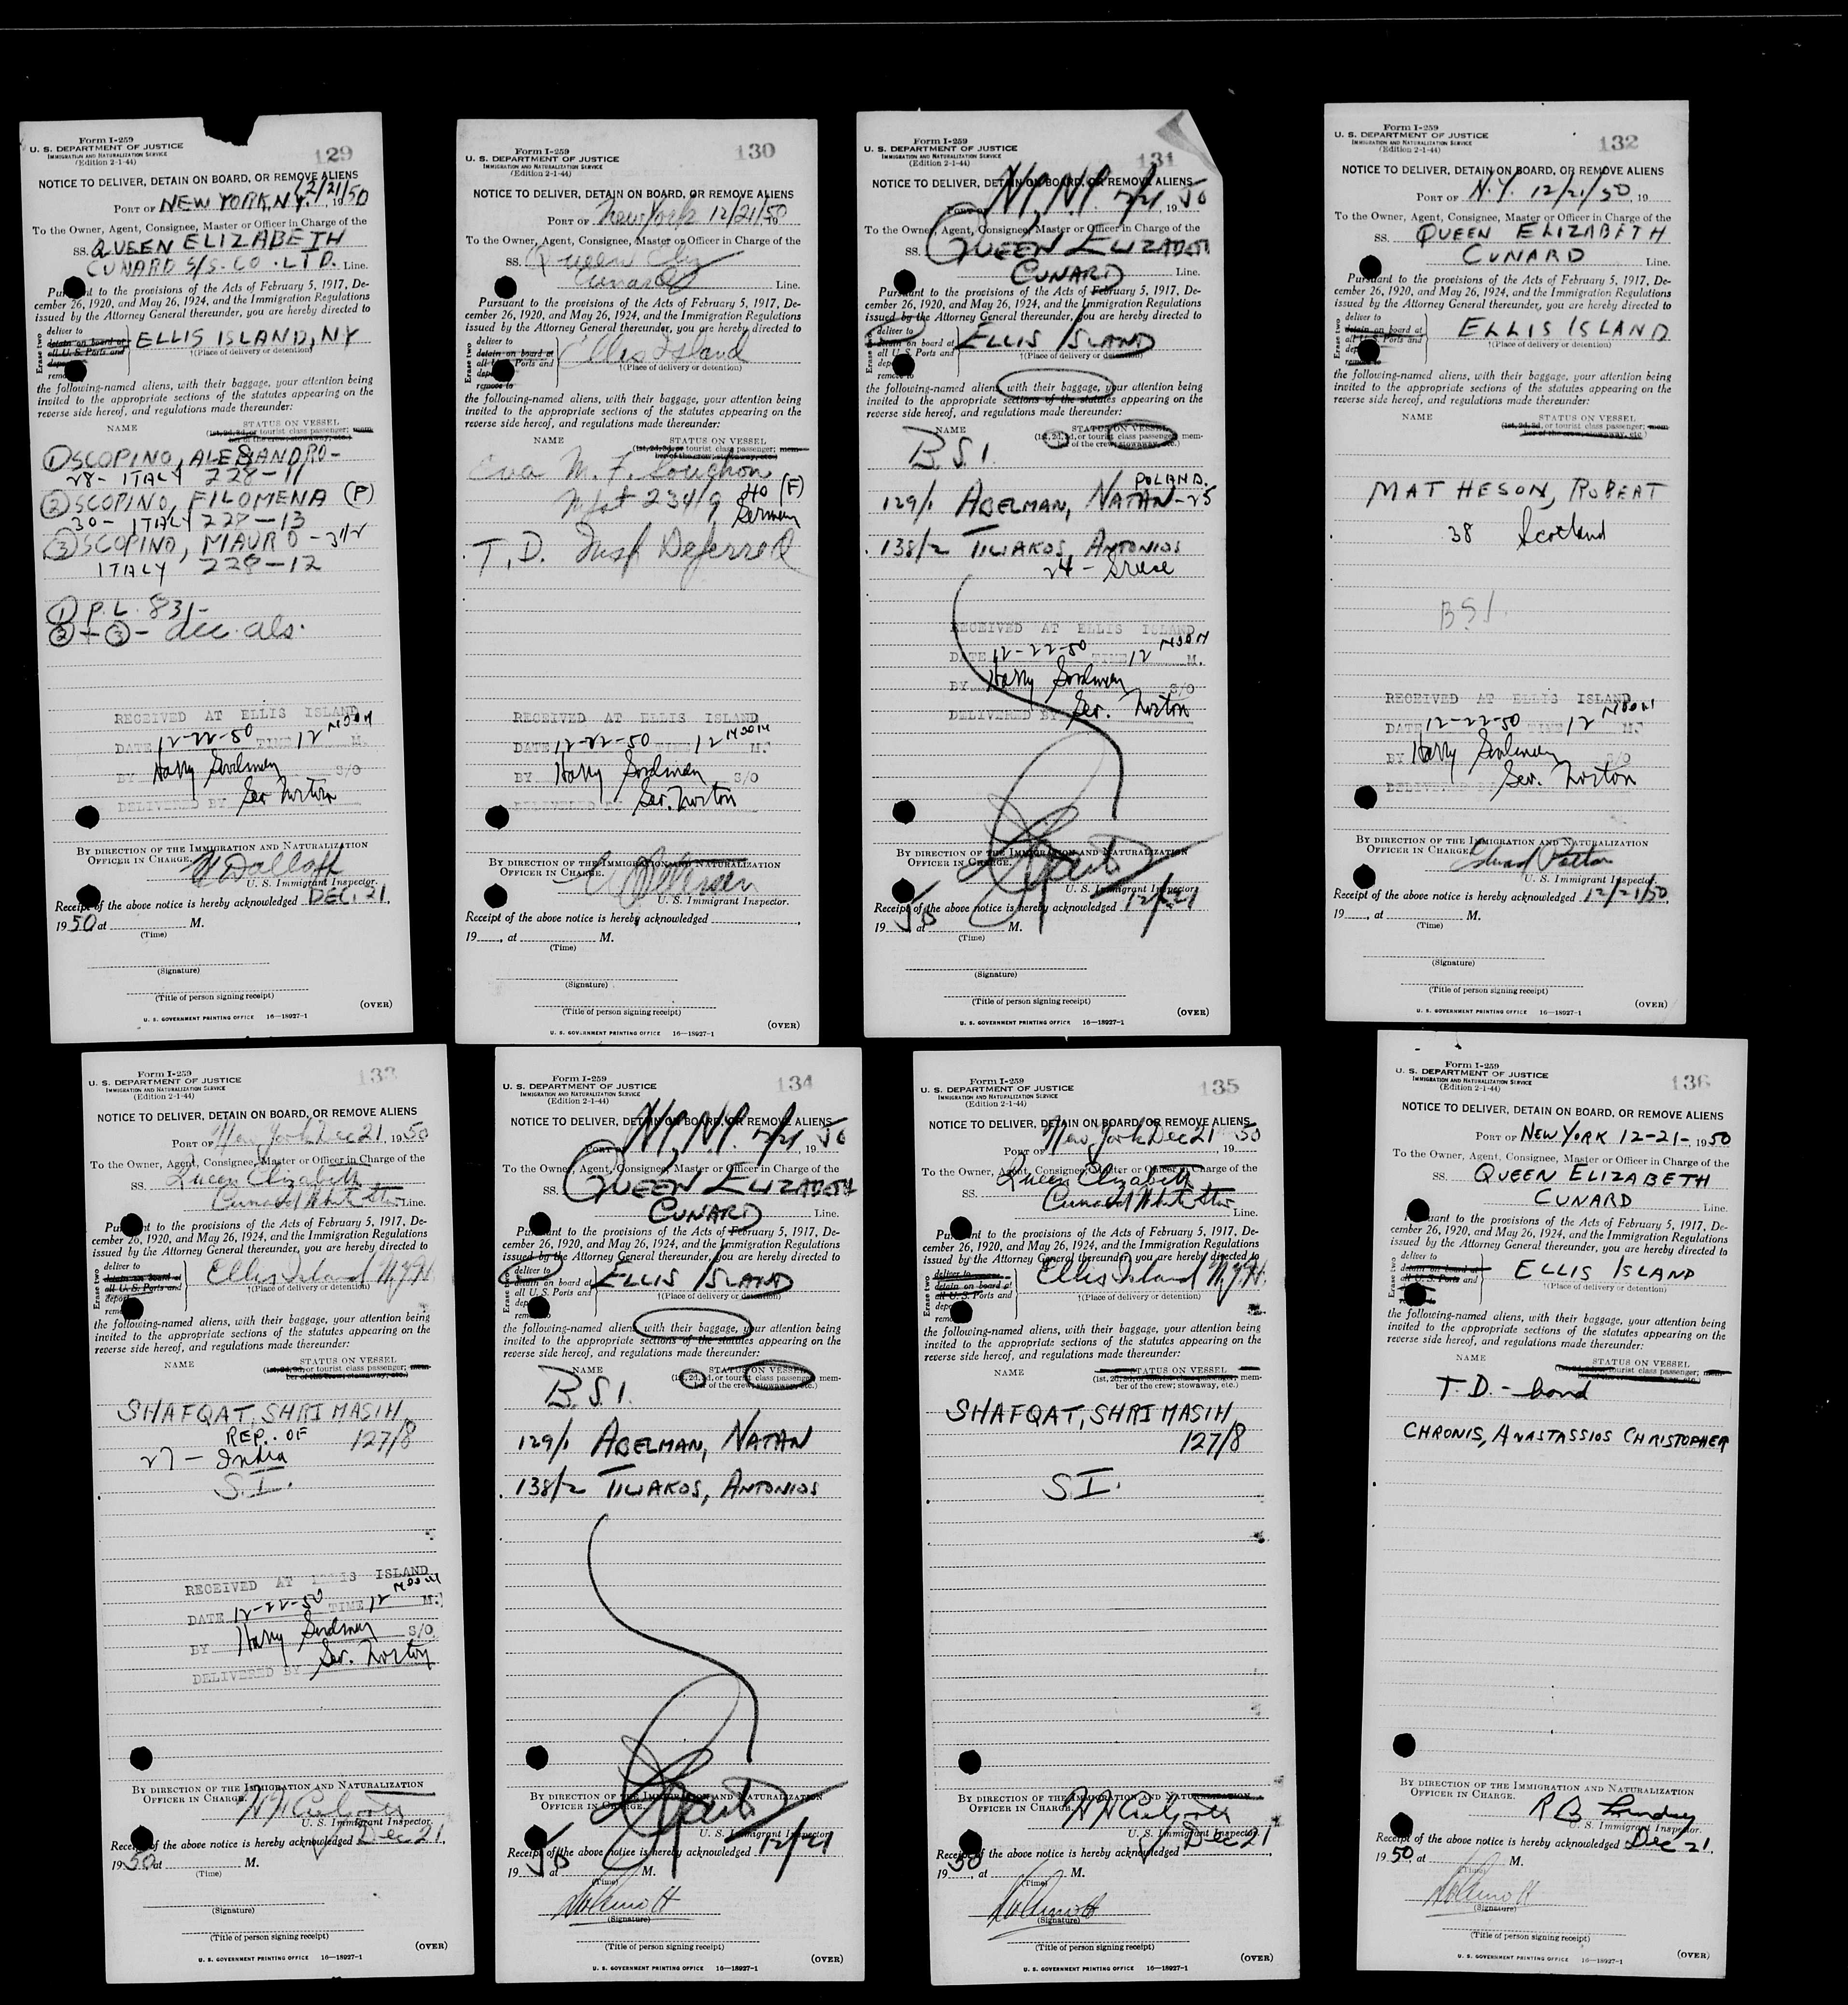 Form I-259
U. S. DEPARTMENT OF JUSTICE
IMMIGRATION AND NATURALIZATION SERVICE
(Edition 2-1-44)
129
NOTICE TO DELIVER, DETAIN ON BOARD, OR REMOVE ALIENS
PORT OF NEW YORK, N.Y. 12/21/50, 1950
To the Owner, Agent, Consignee, Master or Officer in Charge of the
SS. QUEEN ELIZABETH
CUNARD S/S. CO. LTD. Line.
Pursuant to the provisions of the Acts of February 5, 1917, De-
cember 26, 1920, and May 26, 1924, and the Immigration Regulations
issued by the Attorney General thereunder, you are hereby directed to
Erase two
deliver to
detain on board at
all U. S. Ports and
remove
ELLIS ISLAND, NY
†(Place of delivery or detention)
the following-named aliens, with their baggage, your attention being
invited to the appropriate sections of the statutes appearing on the
reverse side hereof, and regulations made thereunder:
NAME STATUS ON VESSEL
(1st, 2d, 3d, or tourist class passenger; mem-
ber of the crew; stowaway, etc.)
① SCOPINO, ALESSANDRO-
28- ITALY 228-11
② SCOPINO, FILOMENA (F)
30- ITALY 228-13
③ SCOPINO, MAURO - 3 1/2
ITALY 228-12
① P.L. 831-
② + ③ - acc. als.
RECEIVED AT ELLIS ISLAND
DATE 12-22-50 TIME 12 NOON M.
BY Harry S/O
DELIVERED BY Ser. Norton
BY DIRECTION OF THE IMMIGRATION AND NATURALIZATION
OFFICER IN CHARGE.
U. S. Immigrant Inspector.
Receipt of the above notice is hereby acknowledged DEC. 21,
1950 at M.
(Time)
(Signature)
(Title of person signing receipt)
(OVER)
U. S. GOVERNMENT PRINTING OFFICE 16—18927-1
Form I-259
U. S. DEPARTMENT OF JUSTICE
IMMIGRATION AND NATURALIZATION SERVICE
(Edition 2-1-44)
130
NOTICE TO DELIVER, DETAIN ON BOARD, OR REMOVE ALIENS
PORT OF New York 12/21/50, 19
To the Owner, Agent, Consignee, Master or Officer in Charge of the
SS. Queen Eliz
Cunard Line.
Pursuant to the provisions of the Acts of February 5, 1917, De-
cember 26, 1920, and May 26, 1924, and the Immigration Regulations
issued by the Attorney General thereunder, you are hereby directed to
Erase two
deliver to
detain on board at
all U. S. Ports and
remove to
Ellis Island
†(Place of delivery or detention)
the following-named aliens, with their baggage, your attention being
invited to the appropriate sections of the statutes appearing on the
reverse side hereof, and regulations made thereunder:
NAME STATUS ON VESSEL
(1st, 2d, 3d, or tourist class passenger; mem-
ber of the crew; stowaway, etc.)
Eva M. F.
23419 40 (F)
German
T. D. Insp Deferred
RECEIVED AT ELLIS ISLAND
DATE 12-22-50 TIME 12 NOON M.
BY Harry S/O
DELIVERED BY Ser. Norton
BY DIRECTION OF THE IMMIGRATION AND NATURALIZATION
OFFICER IN CHARGE.
U. S. Immigrant Inspector.
Receipt of the above notice is hereby acknowledged
19, at M.
(Time)
(Signature)
(Title of person signing receipt)
(OVER)
U. S. GOVERNMENT PRINTING OFFICE 16—18927-1
Form I-259
U. S. DEPARTMENT OF JUSTICE
IMMIGRATION AND NATURALIZATION SERVICE
(Edition 2-1-44)
131
NOTICE TO DELIVER, DETAIN ON BOARD, OR REMOVE ALIENS
PORT OF N.Y., N.Y. 12/21, 1950
To the Owner, Agent, Consignee, Master or Officer in Charge of the
SS. QUEEN ELIZABETH
CUNARD Line.
Pursuant to the provisions of the Acts of February 5, 1917, De-
cember 26, 1920, and May 26, 1924, and the Immigration Regulations
issued by the Attorney General thereunder, you are hereby directed to
Erase two
deliver to
detain on board at
all U. S. Ports and
remove to
ELLIS ISLAND
†(Place of delivery or detention)
the following-named aliens, with their baggage, your attention being
invited to the appropriate sections of the statutes appearing on the
reverse side hereof, and regulations made thereunder:
NAME STATUS ON VESSEL
(1st, 2d, 3d, or tourist class passenger; mem-
ber of the crew; stowaway, etc.)
B.S.I.
POLAND.
129/1 ABELMAN, NATAN-25
138/2 TILIAKOS, ANTONIOS
24 - Greece
RECEIVED AT ELLIS ISLAND
DATE 12-22-50 TIME 12 NOON M.
BY Harry S/O
DELIVERED BY Ser. Norton
BY DIRECTION OF THE IMMIGRATION AND NATURALIZATION
OFFICER IN CHARGE.
U. S. Immigrant Inspector.
Receipt of the above notice is hereby acknowledged 12/21
1950 at M.
(Time)
(Signature)
(Title of person signing receipt)
(OVER)
U. S. GOVERNMENT PRINTING OFFICE 16—18927-1
Form I-259
U. S. DEPARTMENT OF JUSTICE
IMMIGRATION AND NATURALIZATION SERVICE
(Edition 2-1-44)
132
NOTICE TO DELIVER, DETAIN ON BOARD, OR REMOVE ALIENS
PORT OF N.Y. 12/21/50, 19
To the Owner, Agent, Consignee, Master or Officer in Charge of the
SS. QUEEN ELIZABETH
CUNARD Line.
Pursuant to the provisions of the Acts of February 5, 1917, De-
cember 26, 1920, and May 26, 1924, and the Immigration Regulations
issued by the Attorney General thereunder, you are hereby directed to
Erase two
deliver to
detain on board at
all U. S. Ports and
remove to
ELLIS ISLAND
†(Place of delivery or detention)
the following-named aliens, with their baggage, your attention being
invited to the appropriate sections of the statutes appearing on the
reverse side hereof, and regulations made thereunder:
NAME STATUS ON VESSEL
(1st, 2d, 3d, or tourist class passenger; mem-
ber of the crew; stowaway, etc.)
MATHESON, ROBERT
38 Scotland
BSI.
RECEIVED AT ELLIS ISLAND
DATE 12-22-50 TIME 12 NOON M.
BY Harry S/O
DELIVERED BY Ser. Norton
BY DIRECTION OF THE IMMIGRATION AND NATURALIZATION
OFFICER IN CHARGE.
U. S. Immigrant Inspector.
Receipt of the above notice is hereby acknowledged 12/21/50,
19, at M.
(Time)
(Signature)
(Title of person signing receipt)
(OVER)
U. S. GOVERNMENT PRINTING OFFICE 16—18927-1
Form I-259
U. S. DEPARTMENT OF JUSTICE
IMMIGRATION AND NATURALIZATION SERVICE
(Edition 2-1-44)
133
NOTICE TO DELIVER, DETAIN ON BOARD, OR REMOVE ALIENS
PORT OF New York Dec 21 1950
To the Owner, Agent, Consignee, Master or Officer in Charge of the
SS. Queen Elizabeth
Cunard White Star Line.
Pursuant to the provisions of the Acts of February 5, 1917, De-
cember 26, 1920, and May 26, 1924, and the Immigration Regulations
issued by the Attorney General thereunder, you are hereby directed to
Erase two
deliver to
detain on board at
all U. S. Ports and
deport
remove
Ellis Island N.Y.H.
†(Place of delivery or detention)
the following-named aliens, with their baggage, your attention being
invited to the appropriate sections of the statutes appearing on the
reverse side hereof, and regulations made thereunder:
NAME STATUS ON VESSEL
(1st, 2d, 3d, or tourist class passenger; mem-
ber of the crew; stowaway, etc.)
SHAFQAT, SHRI MASIH
REP. OF 127/8
27 - India
S.I.
RECEIVED AT ELLIS ISLAND
DATE 12-22-50 TIME 12 NOON M.
BY Harry S/O
DELIVERED BY Ser. Norton
BY DIRECTION OF THE IMMIGRATION AND NATURALIZATION
OFFICER IN CHARGE.
U. S. Immigrant Inspector.
Receipt of the above notice is hereby acknowledged Dec 21,
1950 at M.
(Time)
(Signature)
(Title of person signing receipt)
(OVER)
U. S. GOVERNMENT PRINTING OFFICE 16—18927-1
Form I-259
U. S. DEPARTMENT OF JUSTICE
IMMIGRATION AND NATURALIZATION SERVICE
(Edition 2-1-44)
134
NOTICE TO DELIVER, DETAIN ON BOARD, OR REMOVE ALIENS
PORT OF N.Y., N.Y. 12/21, 1950
To the Owner, Agent, Consignee, Master or Officer in Charge of the
SS. QUEEN ELIZABETH
CUNARD Line.
Pursuant to the provisions of the Acts of February 5, 1917, De-
cember 26, 1920, and May 26, 1924, and the Immigration Regulations
issued by the Attorney General thereunder, you are hereby directed to
Erase two
deliver to
detain on board at
all U. S. Ports and
remove to
ELLIS ISLAND
†(Place of delivery or detention)
the following-named aliens, with their baggage, your attention being
invited to the appropriate sections of the statutes appearing on the
reverse side hereof, and regulations made thereunder:
NAME STATUS ON VESSEL
(1st, 2d, 3d, or tourist class passenger; mem-
ber of the crew; stowaway, etc.)
B.S.I.
129/1 ABELMAN, NATAN
138/2 TILIAKOS, ANTONIOS
BY DIRECTION OF THE IMMIGRATION AND NATURALIZATION
OFFICER IN CHARGE.
U. S. Immigrant Inspector
Receipt of the above notice is hereby acknowledged 12/21
1950 at M.
(Time)
(Signature)
(Title of person signing receipt)
(OVER)
U. S. GOVERNMENT PRINTING OFFICE 16—18927-1
Form I-259
U. S. DEPARTMENT OF JUSTICE
IMMIGRATION AND NATURALIZATION SERVICE
(Edition 2-1-44)
135
NOTICE TO DELIVER, DETAIN ON BOARD, OR REMOVE ALIENS
PORT OF New York Dec 21, 1950
To the Owner, Agent, Consignee, Master or Officer in Charge of the
SS. Queen Elizabeth
Cunard White Star Line.
Pursuant to the provisions of the Acts of February 5, 1917, De-
cember 26, 1920, and May 26, 1924, and the Immigration Regulations
issued by the Attorney General thereunder, you are hereby directed to
Erase two
deliver to
detain on board at
all U. S. Ports and
remove to
Ellis Island N.Y.H.
†(Place of delivery or detention)
the following-named aliens, with their baggage, your attention being
invited to the appropriate sections of the statutes appearing on the
reverse side hereof, and regulations made thereunder:
NAME STATUS ON VESSEL
(1st, 2d, 3d, or tourist class passenger; mem-
ber of the crew; stowaway, etc.)
SHAFQAT, SHRI MASIH
127/8
S.I.
BY DIRECTION OF THE IMMIGRATION AND NATURALIZATION
OFFICER IN CHARGE.
U. S. Immigrant Inspector.
Receipt of the above notice is hereby acknowledged Dec 21
1950, at M.
(Time)
(Signature)
(Title of person signing receipt)
(OVER)
U. S. GOVERNMENT PRINTING OFFICE 16—18927-1
Form I-259
U. S. DEPARTMENT OF JUSTICE
IMMIGRATION AND NATURALIZATION SERVICE
(Edition 2-1-44)
136
NOTICE TO DELIVER, DETAIN ON BOARD, OR REMOVE ALIENS
PORT OF NEW YORK 12-21-, 1950
To the Owner, Agent, Consignee, Master or Officer in Charge of the
SS. QUEEN ELIZABETH
CUNARD Line.
Pursuant to the provisions of the Acts of February 5, 1917, De-
cember 26, 1920, and May 26, 1924, and the Immigration Regulations
issued by the Attorney General thereunder, you are hereby directed to
Erase two
deliver to
detain on board at
all U. S. Ports and
ELLIS ISLAND
†(Place of delivery or detention)
the following-named aliens, with their baggage, your attention being
invited to the appropriate sections of the statutes appearing on the
reverse side hereof, and regulations made thereunder:
NAME STATUS ON VESSEL
(1st, 2d, 3d, or tourist class passenger; mem-
ber of the crew; stowaway, etc.)
T. D. - bond
CHRONIS, ANASTASSIOS CHRISTOPHER
BY DIRECTION OF THE IMMIGRATION AND NATURALIZATION
OFFICER IN CHARGE.
U. S. Immigrant Inspector.
Receipt of the above notice is hereby acknowledged Dec 21,
1950, at M.
(Time)
(Signature)
(Title of person signing receipt)
(OVER)
U. S. GOVERNMENT PRINTING OFFICE 16—18927-1